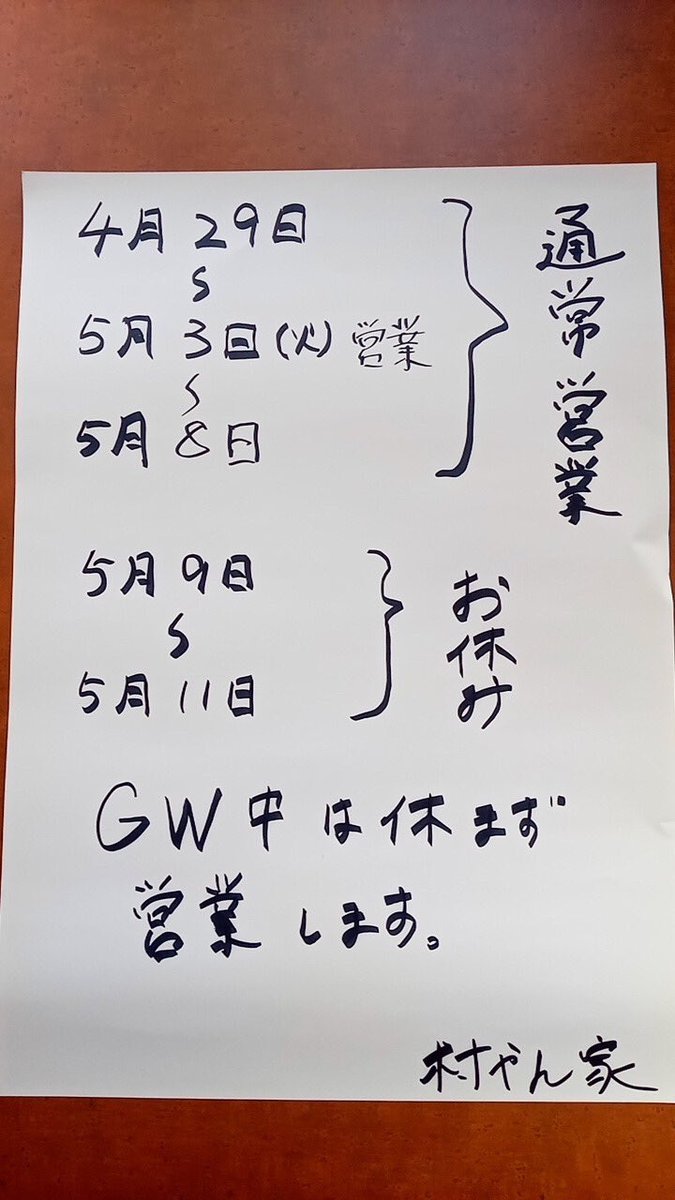 4月29日
〜
5月3日(火)営業
〜
5月8日
通常営業
5月9日
〜
5月11日
お休み
GW中は休まず
営業します。
村やん家